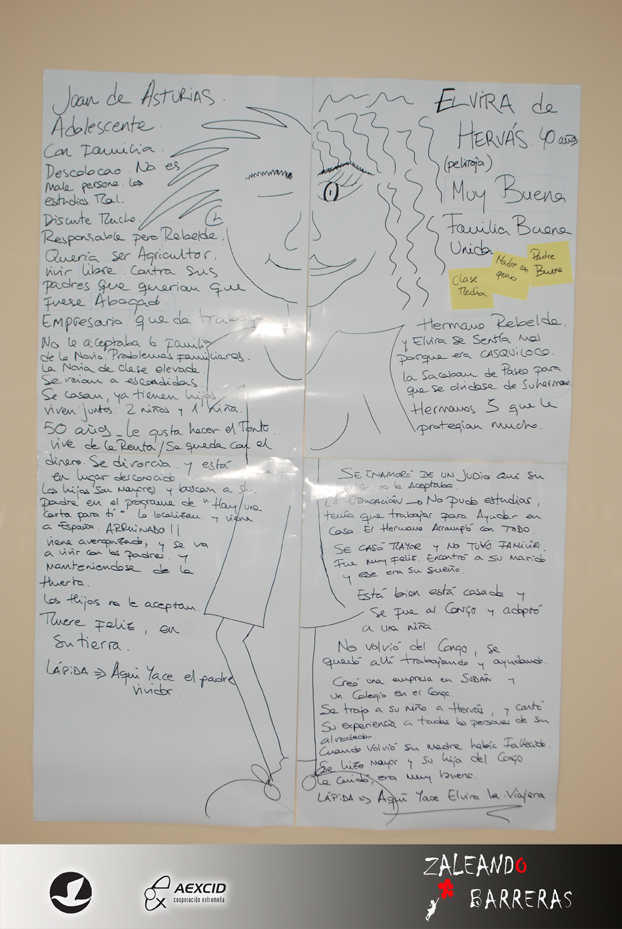 Joan de ASTURIAS.
Adolescente.
Con Familia.
Descolocao. No es
mala persona. los
estudios Mal.
Discute Mucho.
Responsable pero Rebelde.
Quería ser Agricultor.
vivir libre. Contra sus
padres que querian que
fuese Abogado
Empresario que da
No le aceptaba la Familia
de la Novia. Problemas Familiares.
La Novia de clase elevada.
Se veian a escondidas.
Se casan, ya tienen hijos
viven juntos. 2 niños y 1 niña.
50 años. le gusta hacer el Tonto
vive de la Renta/Se queda con el
dinero. Se divorcia. y está
en lugar desconocido
los hijos son mayores y buscan a su
padre en el programa de "Hay una
carta para ti". lo localizan y viene
a España. ARRUINADO!!
viene avergonzado, y se va
a vivir con los padres y
manteniendose de la
Huerta.
los Hijos no le aceptan.
Muere Feliz, en
su tierra.
LÁPIDA ⇒ Aquí Yace el padre
vividor.
ELVIRA de
HERVÁS. 40 años
(peliroja)
Muy Buena
Familia Buena
Unida
Clase
Media
Madre con
genio
Padre
Bueno
Hermano Rebelde.
y Elvira se Sentía mal
porque era CASQUILOCO.
la Sacaban de Paseo para
que se olvidase de Su hermano
Hermanos 3 que la
protegian mucho.
SE ENAMORÓ DE UN JUDIO que su
no le Aceptaba.
LA EDUCACIÓN → No pudo estudiar,
tenía que trabajar para Ayudar en
Casa. El Hermano Arrampló con TODO
SE CASÓ MAYOR y NO TUVO FAMILIA.
Fue muy Feliz. Encontró a su Marido
y ese era su sueño.
Está bien está casada y
Se fue al Congo y adoptó
a una niña.
No volvió del Congo, se
quedó allí trabajando y ayudando.
Creó una empresa en SUDÁN y
un Colegio en el Congo.
Se trajo a su niño a Hervás, y contó
su experiencia a todas las personas de su
alrededor
Cuando volvió su madre había Fallecido.
Se hizo Mayor y su hija del Congo
la cuidó, era muy buena.
LÁPIDA ⇒ Aquí Yace Elvira la Viajera
AEXCID
cooperación extremeña
ZALEANDO
BARRERAS